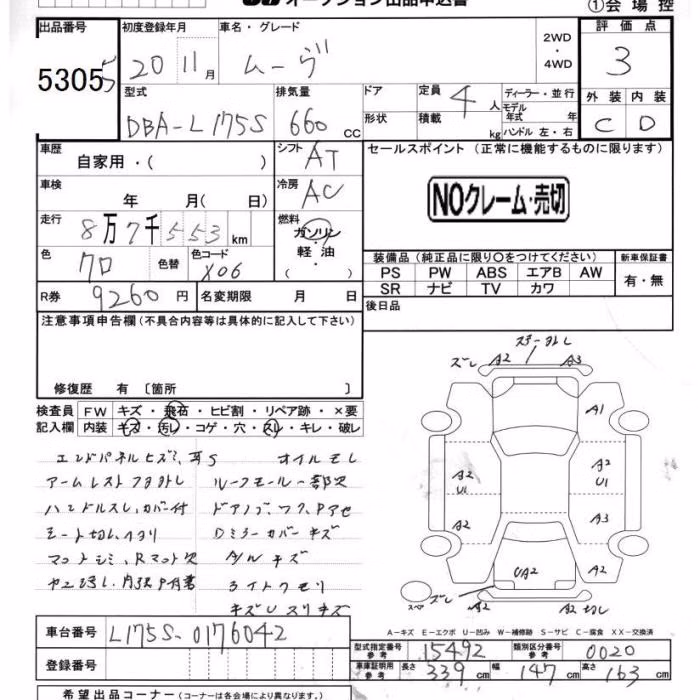 オークション出品申込書
①会場控
出品番号 初度登録年月 車名・グレード 2WD・4WD 評価点
53055 20 11月 ムーヴ 3
型式 排気量 ドア 定員 4人 ディーラー・並行 外装 内装
モデル年式 年
DBA-L175S 660cc 形状 積載 kg ハンドル 左・右 C D
車歴 自家用・( ) シフト AT セールスポイント (正常に機能するものに限ります)
車検 年 月( 日) 冷房 AC
NOクレーム・売切
走行 8万7千553km 燃料 ガソリン・軽油・( )
色 クロ 色替 色コード X06
装備品(純正品に限り○をつけてください) 新車保証書
PS PW ABS エアB AW 有・無
SR ナビ TV カワ
R券 9260円 名変期限 月 日 後日品
注意事項申告欄(不具合内容等は具体的に記入して下さい)
修復歴 有〔箇所 〕
検査員記入欄 FW キズ・飛石・ヒビ割・リペア跡・×要
内装 キズ・汚レ・コゲ・穴・スレ・キレ・破レ
エンドパネルヒズミ、 オイルモレ
アームレストフタ外レ ルーフモール一部欠
ハンドルスレ、カバー付 ドアノブ
シート切レ、
マットシミ、Rマット欠 Dミラーカバーキズ
A/Wキズ
ライトクモリ
キズUスリキズ
ズレ A2 A3
A1
A2 U1 A2 U1
A2 A3
UA2 A2
スペア ズレ A2 A2 切レ
A-キズ E-エクボ U-凹み W-補修跡 S-サビ C-腐食 XX-交換済
車台番号 L175S-0176042
型式指定番号 参考 15492 類別区分番号 参考 0020
登録番号
車庫証明用 参考 長さ 339cm 幅 147cm 高さ 163cm
希望出品コーナー(コーナーは各会場により異なります。)